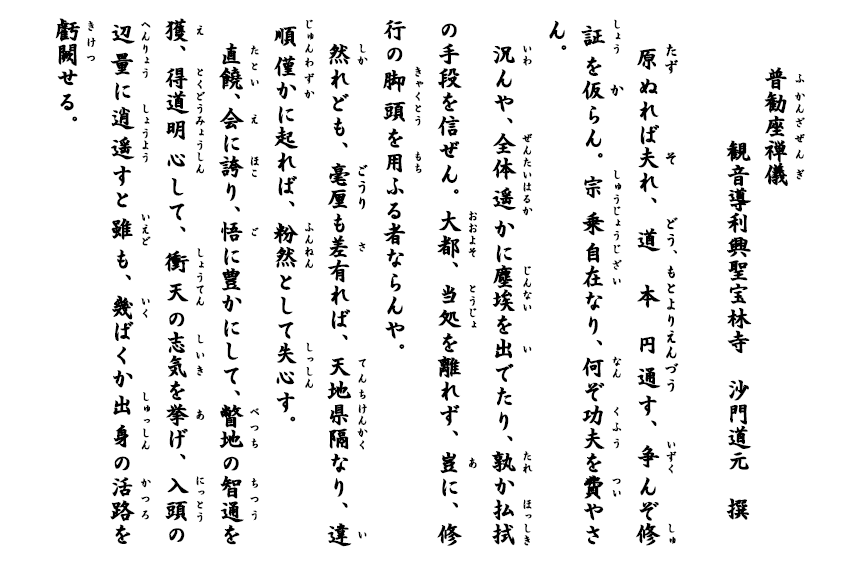 普勧座禅儀
観音導利興聖宝林寺　沙門道元　撰
原ぬれば夫れ、道本円通す、争んぞ修
証を仮らん。宗乗自在なり、何ぞ功夫を費やさ
ん。
況んや、全体遥かに塵埃を出でたり、孰か払拭
の手段を信ぜん。大都、当処を離れず、豈に、修
行の脚頭を用ふる者ならんや。
然れども、毫厘も差有れば、天地県隔なり、違
順僅かに起れば、粉然として失心す。
直饒、会に誇り、悟に豊かにして、瞥地の智通を
獲、得道明心して、衝天の志気を挙げ、入頭の
辺量に逍遥すと雖も、幾ばくか出身の活路を
虧闕せる。